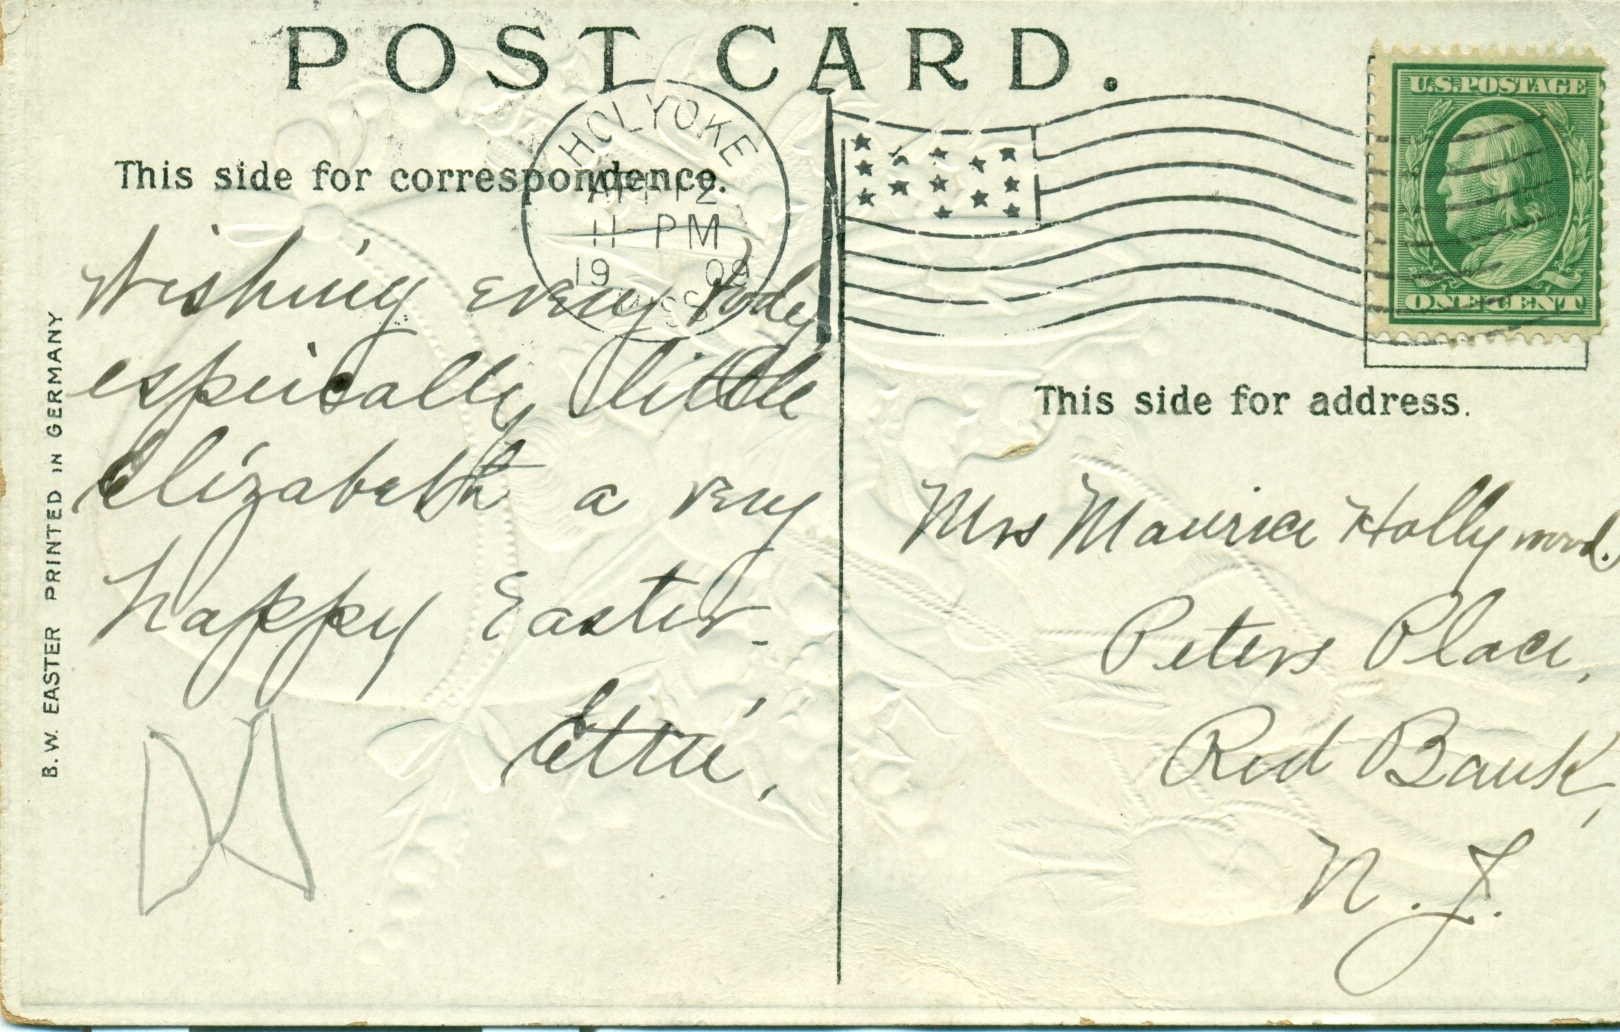 POST CARD.
This side for correspondence.
HOLYOKE
APR 12
11-PM
1909
MASS
U.S. POSTAGE
ONE CENT
Wishing every body
especially little
Elizabeth a very
happy Easter.
Ettie,
This side for address.
Mrs Maurice Hollywood.
Peters Place,
Red Bank,
N.J.
B. W. EASTER PRINTED IN GERMANY